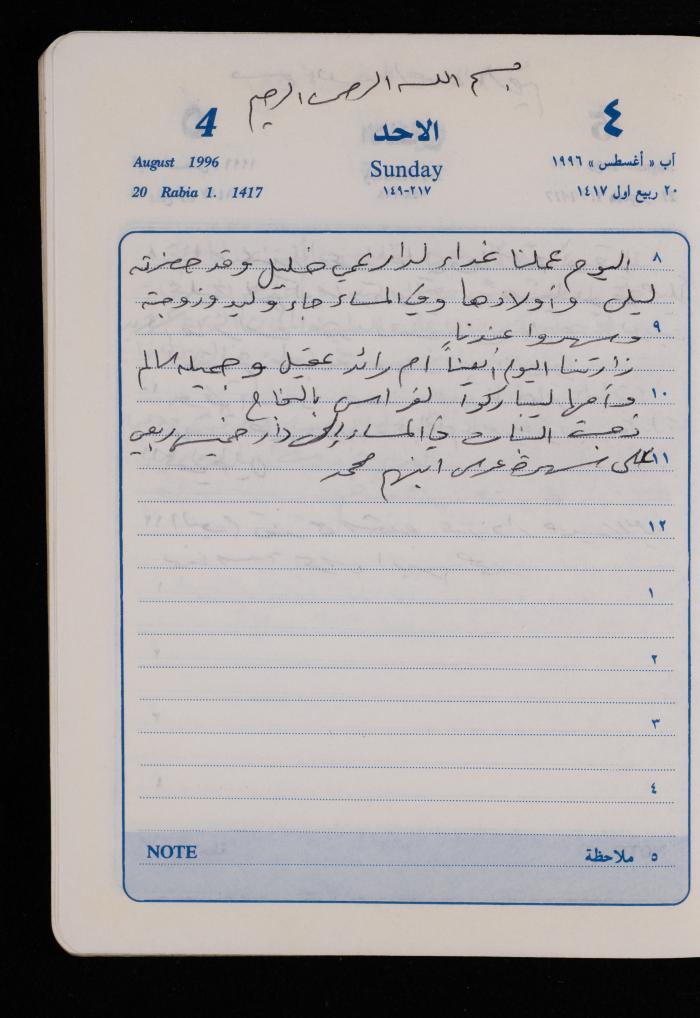 بسم الله الرحمن الرحيم
4 الاحد ٤
August 1996 Sunday آب « أغسطس » ١٩٩٦
20 Rabia 1. 1417 ٢١٧-١٤٩ ٢٠ ربيع اول ١٤١٧
٨ اليوم عملنا غداء لدار عمي خليل وقد حضرته
ليلى وأولادها وفي المساء جاء وليد وزوجته
٩ وسهروا عندنا
زارتنا اليوم أيضاً ام رائد عقيل وجميله سالم
١٠ وأمها ليباركوا لفراس بالنجاح
ذهبت البنات في المساء إلى دار خميس ربعي
١١ على سهرة عرس ابنهم محمد
١٢
١
٢
٣
٤
NOTE ٥ ملاحظة